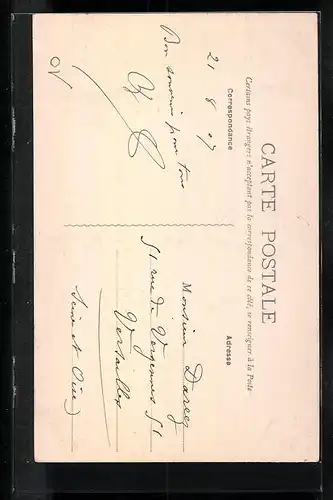 CARTE POSTALE
Certains pays étrangers n'acceptant pas la correspondance de ce côté, se renseigner à la Poste
Correspondance
21 8 07
Bon souvenir pour tous
Adresse
Monsieur Darcq
51 rue de Vergennes 51
Versailles
Seine et Oise